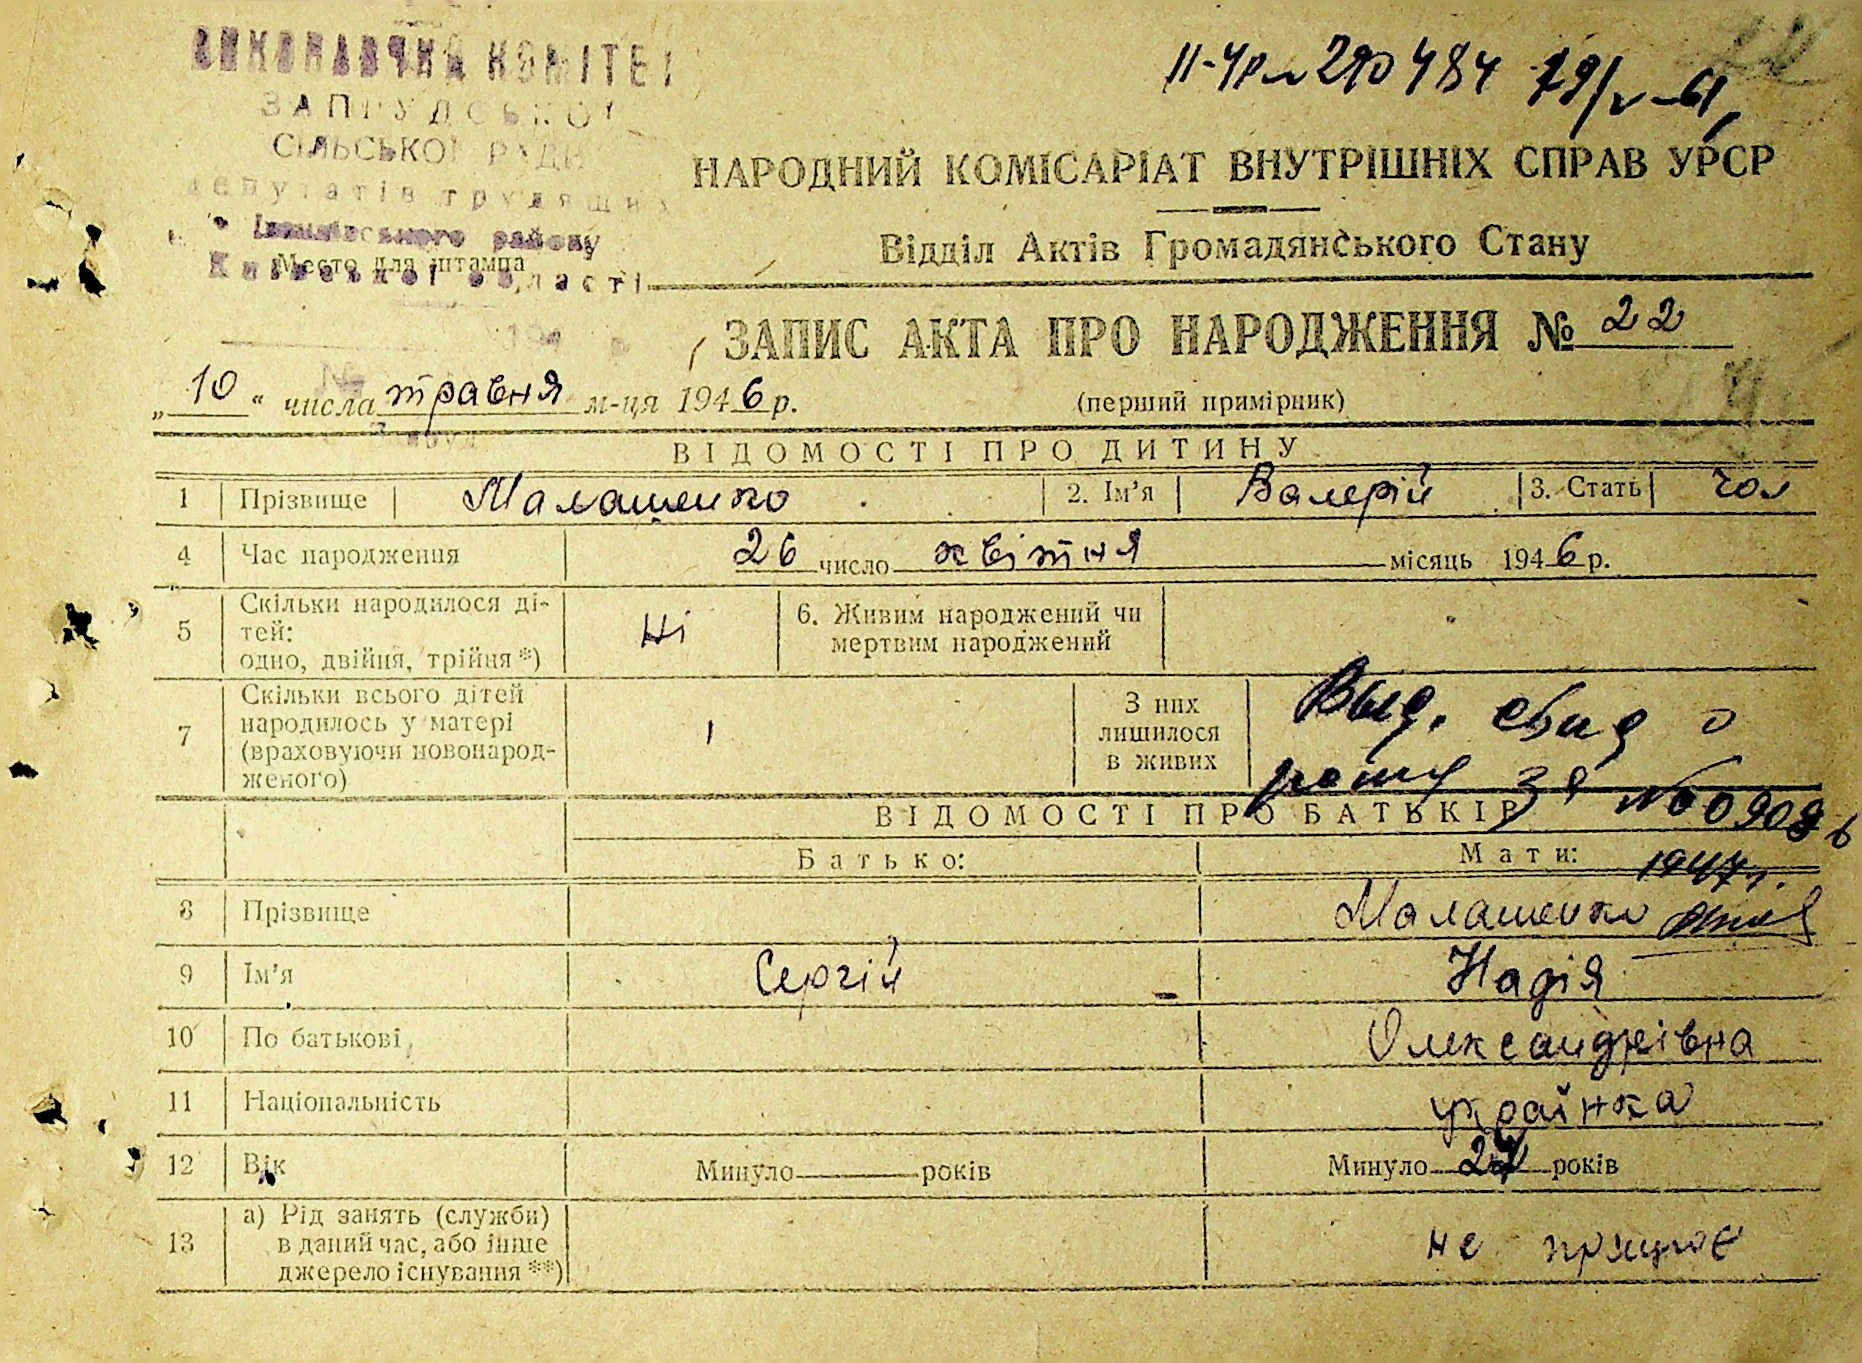 ВИКОНАВЧИЙ КОМІТЕТ
ЗАПРУДСЬКОЇ
СІЛЬСЬКОЇ РАДИ
депутатів трудящих
району
Место для штампа
Київської області
II-ЧР № 290484 19/V-61
НАРОДНИЙ КОМІСАРІАТ ВНУТРІШНІХ СПРАВ УРСР
Відділ Актів Громадянського Стану
ЗАПИС АКТА ПРО НАРОДЖЕННЯ № 22
„10“ числа травня м-ця 1946 р.
(перший примірник)
ВІДОМОСТІ ПРО ДИТИНУ
1 Прізвище Малашенко 2. Ім’я Валерій 3. Стать чол
4 Час народження 26 число квітня місяць 1946 р.
5 Скільки народилося ді-
тей:
одно, двійня, трійня *) Ні 6. Живим народжений чи
мертвим народжений
7 Скільки всього дітей
народилось у матері
(враховуючи новонарод-
женого) 1 З них
лишилося
в живих
Выд. свид о
рожд ЗЯ №
1947 г.
ВІДОМОСТІ ПРО БАТЬКІВ
Батько: Мати:
8 Прізвище Малашенко
9 Ім’я Сергій Надія
10 По батькові Олександрівна
11 Національність українка
12 Вік Минуло років Минуло 27 років
13 а) Рід занять (служби)
в даний час, або інше
джерело існування **) не працює